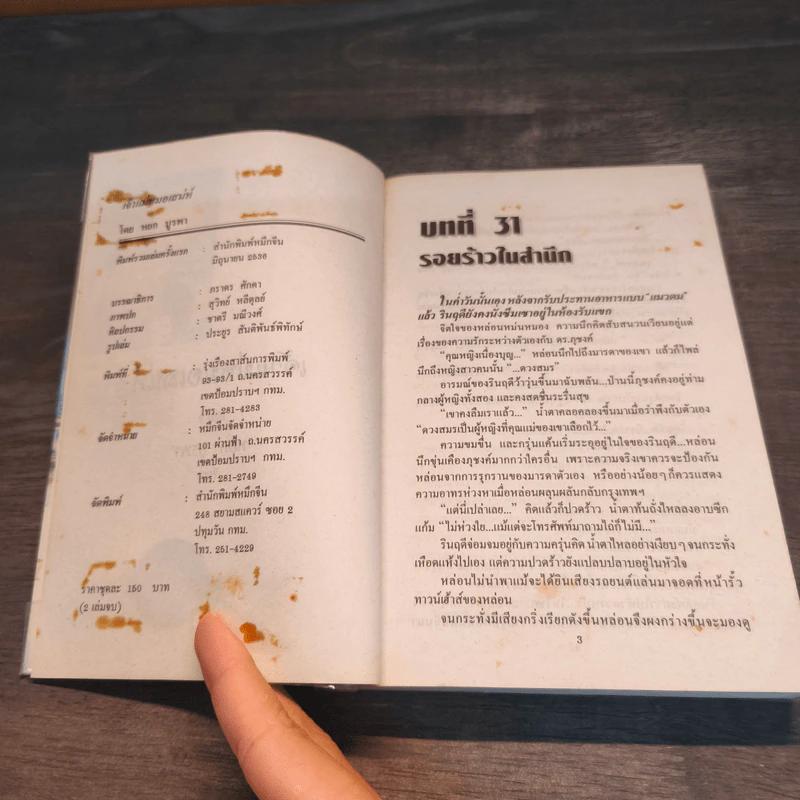 เจ้าแม่หมอเสน่ห์
โดย หยก บูรพา
พิมพ์รวมเล่มครั้งแรก : สำนักพิมพ์หมึกจีน
มิถุนายน 2536
บรรณาธิการ : ภราดร ศักดา
ภาพปก : สุวิทย์ หลีดุลย์
ศิลปกรรม : ชาตรี มณีวงศ์
รูปเล่ม : ประยูร สันติพันธ์พิทักษ์
พิมพ์ที่ : รุ่งเรืองสาส์นการพิมพ์
93-93/1 ถ.นครสวรรค์
เขตป้อมปราบฯ กทม.
โทร. 281-4283
จัดจำหน่าย : หมึกจีนจัดจำหน่าย
101 ผ่านฟ้า ถ.นครสวรรค์
เขตป้อมปราบฯ กทม.
โทร. 281-2749
จัดพิมพ์ : สำนักพิมพ์หมึกจีน
248 สยามสแควร์ ซอย 2
ปทุมวัน กทม.
โทร. 251-4229
ราคาชุดละ 150 บาท
(2 เล่มจบ)
บทที่ 31
รอยร้าวในสำนึก
ในค่ำวันนั้นเอง หลังจากรับประทานอาหารแบบ “แมวดม”
แล้ว รินฤดียังคงนั่งซึมเซาอยู่ในห้องรับแขก
จิตใจของหล่อนหม่นหมอง ความนึกคิดสับสนวนเวียนอยู่แต่
เรื่องของความรักระหว่างตัวเองกับ ดร.ภุชงค์
“คุณหญิงเนื่องบุญ...” หล่อนนึกไปถึงมารดาของเขา แล้วก็ไพล่
นึกถึงหญิงสาวคนนั้น “...ดวงสมร”
อารมณ์ของรินฤดีว้าวุ่นขึ้นมาฉับพลัน...ป่านนี้ภุชงค์คงอยู่ท่าม
กลางผู้หญิงทั้งสอง และคงสดชื่นระรื่นสุข
“เขาคงลืมเราแล้ว...” น้ำตาคลอคลองขึ้นมาเมื่อรำพึงกับตัวเอง
“ดวงสมรเป็นผู้หญิงที่คุณแม่ของเขาเลือกไว้...”
ความขมขื่น และกรุ่นแค้นเริ่มระอุอยู่ในใจของรินฤดี...หล่อน
นึกขุ่นเคืองภุชงค์มากกว่าใครอื่น เพราะความจริงเขาควรจะป้องกัน
หล่อนจากการรุกรานของมารดาตัวเอง หรืออย่างน้อยๆ ก็ควรแสดง
ความอาทรห่วงหาเมื่อหล่อนผลุนผลันกลับกรุงเทพฯ
“แต่นี่เปล่าเลย...” คิดแล้วก็ปวดร้าว น้ำตาพลันถั่งไหลลงอาบซีก
แก้ม “ไม่ห่วงใย...แม้แต่จะโทรศัพท์มาถามไถ่ก็ไม่มี...”
รินฤดีจ่อมจมอยู่กับความครุ่นคิด น้ำตาไหลอย่างเงียบๆ จนกระทั่ง
เหือดแห้งไปเอง แต่ความปวดร้าวยังแปลบปลาบอยู่ในหัวใจ
หล่อนไม่นำพาแม้จะได้ยินเสียงรถยนต์แล่นมาจอดที่หน้ารั้ว
ทาวน์เฮ้าส์ของหล่อน
จนกระทั่งมีเสียงกริ่งเรียกดังขึ้นหล่อนจึงผงกร่างขึ้นชะมองดู
3